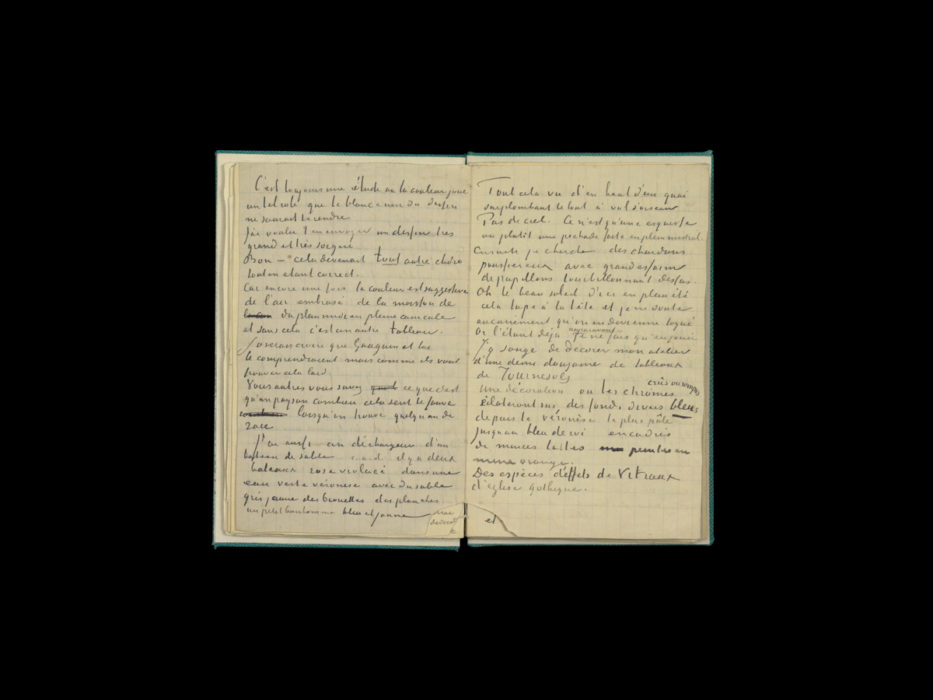 C'est toujours une étude où la couleur joue
un tel rôle que le blanc et noir du dessin
ne saurait le rendre
J'ai voulu t'en envoyer un dessin très
grand et très soigné
Bon — cela devenait tout autre chose
tout en étant correct.
Car encore une fois la couleur est suggestive
de l'air embrasé de la moisson de
du plein midi en pleine canicule
et sans cela c'est un autre tableau.
J'oserais croire que Gauguin et toi
le comprendraient mais comme ils vont
trouver cela laid.
Vous autres vous savez ce que c'est
qu'un paysan combien cela sent le fauve
lorsqu'on trouve quelqu'un de
race
J'ai aussi un déchargeur d'un
bateau de sable c.a.d. il y a deux
bateaux rose violacé dans une
eau verte véronèse avec du sable
gris jaune des brouettes des planches
un petit bonhomme bleu et jaune
Tout cela vu d'en haut d'un quai
surplombant le tout à vol d'oiseau
Pas de ciel. Ce n'est qu'une esquisse
ou plutôt une pochade faite en plein mistral.
Ensuite je cherche des chardons
poussiéreux avec grand essaim
de papillons tourbillonnant dessus
Oh le beau soleil d'ici en plein été
cela tape à la tête et je ne doute
aucunement qu'on en devienne toqué
Or l'étant déjà auparavant je ne fais qu'en jouir
J'y songe de décorer mon atelier
d'une demi douzaine de tableaux
de Tournesols
une décoration où les chromes crus ou rompus
éclateront sur des fonds divers bleus
depuis le véronèse le plus pâle
jusqu'au bleu de roi encadrés
de minces lattes peintes en
mine orange.
Des espèces d'effets de Vitraux
d'église gothique.
et